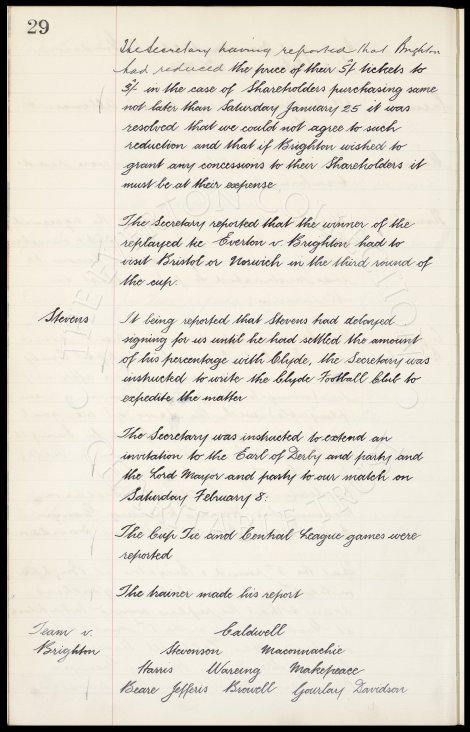 29
The Secretary having reported that Brighton
had reduced the price of their 5/- tickets to
3/- in the case of Shareholders purchasing same
not later than Saturday January 25 it was
resolved that we could not agree to such
reduction and that if Brighton wished to
grant any concessions to their Shareholders it
must be at their expense
The Secretary reported that the winner of the
replayed tie Everton v. Brighton had to
visit Bristol or Norwich in the third round of
the cup.
Stevens
It being reported that Stevens had delayed
signing for us until he had settled the amount
of his percentage with Clyde, the Secretary was
instructed to write the Clyde Football Club to
expedite the matter
The Secretary was instructed to extend an
invitation to the Earl of Derby and party and
the Lord Mayor and party to our match on
Saturday February 8:
The Cup Tie and Central League games were
reported
The trainer made his report
Team v.
Brighton
Caldwell
Stevenson Maconnachie
Harris Wareing Makepeace
Beare Jefferis Browell Gourlay Davidson